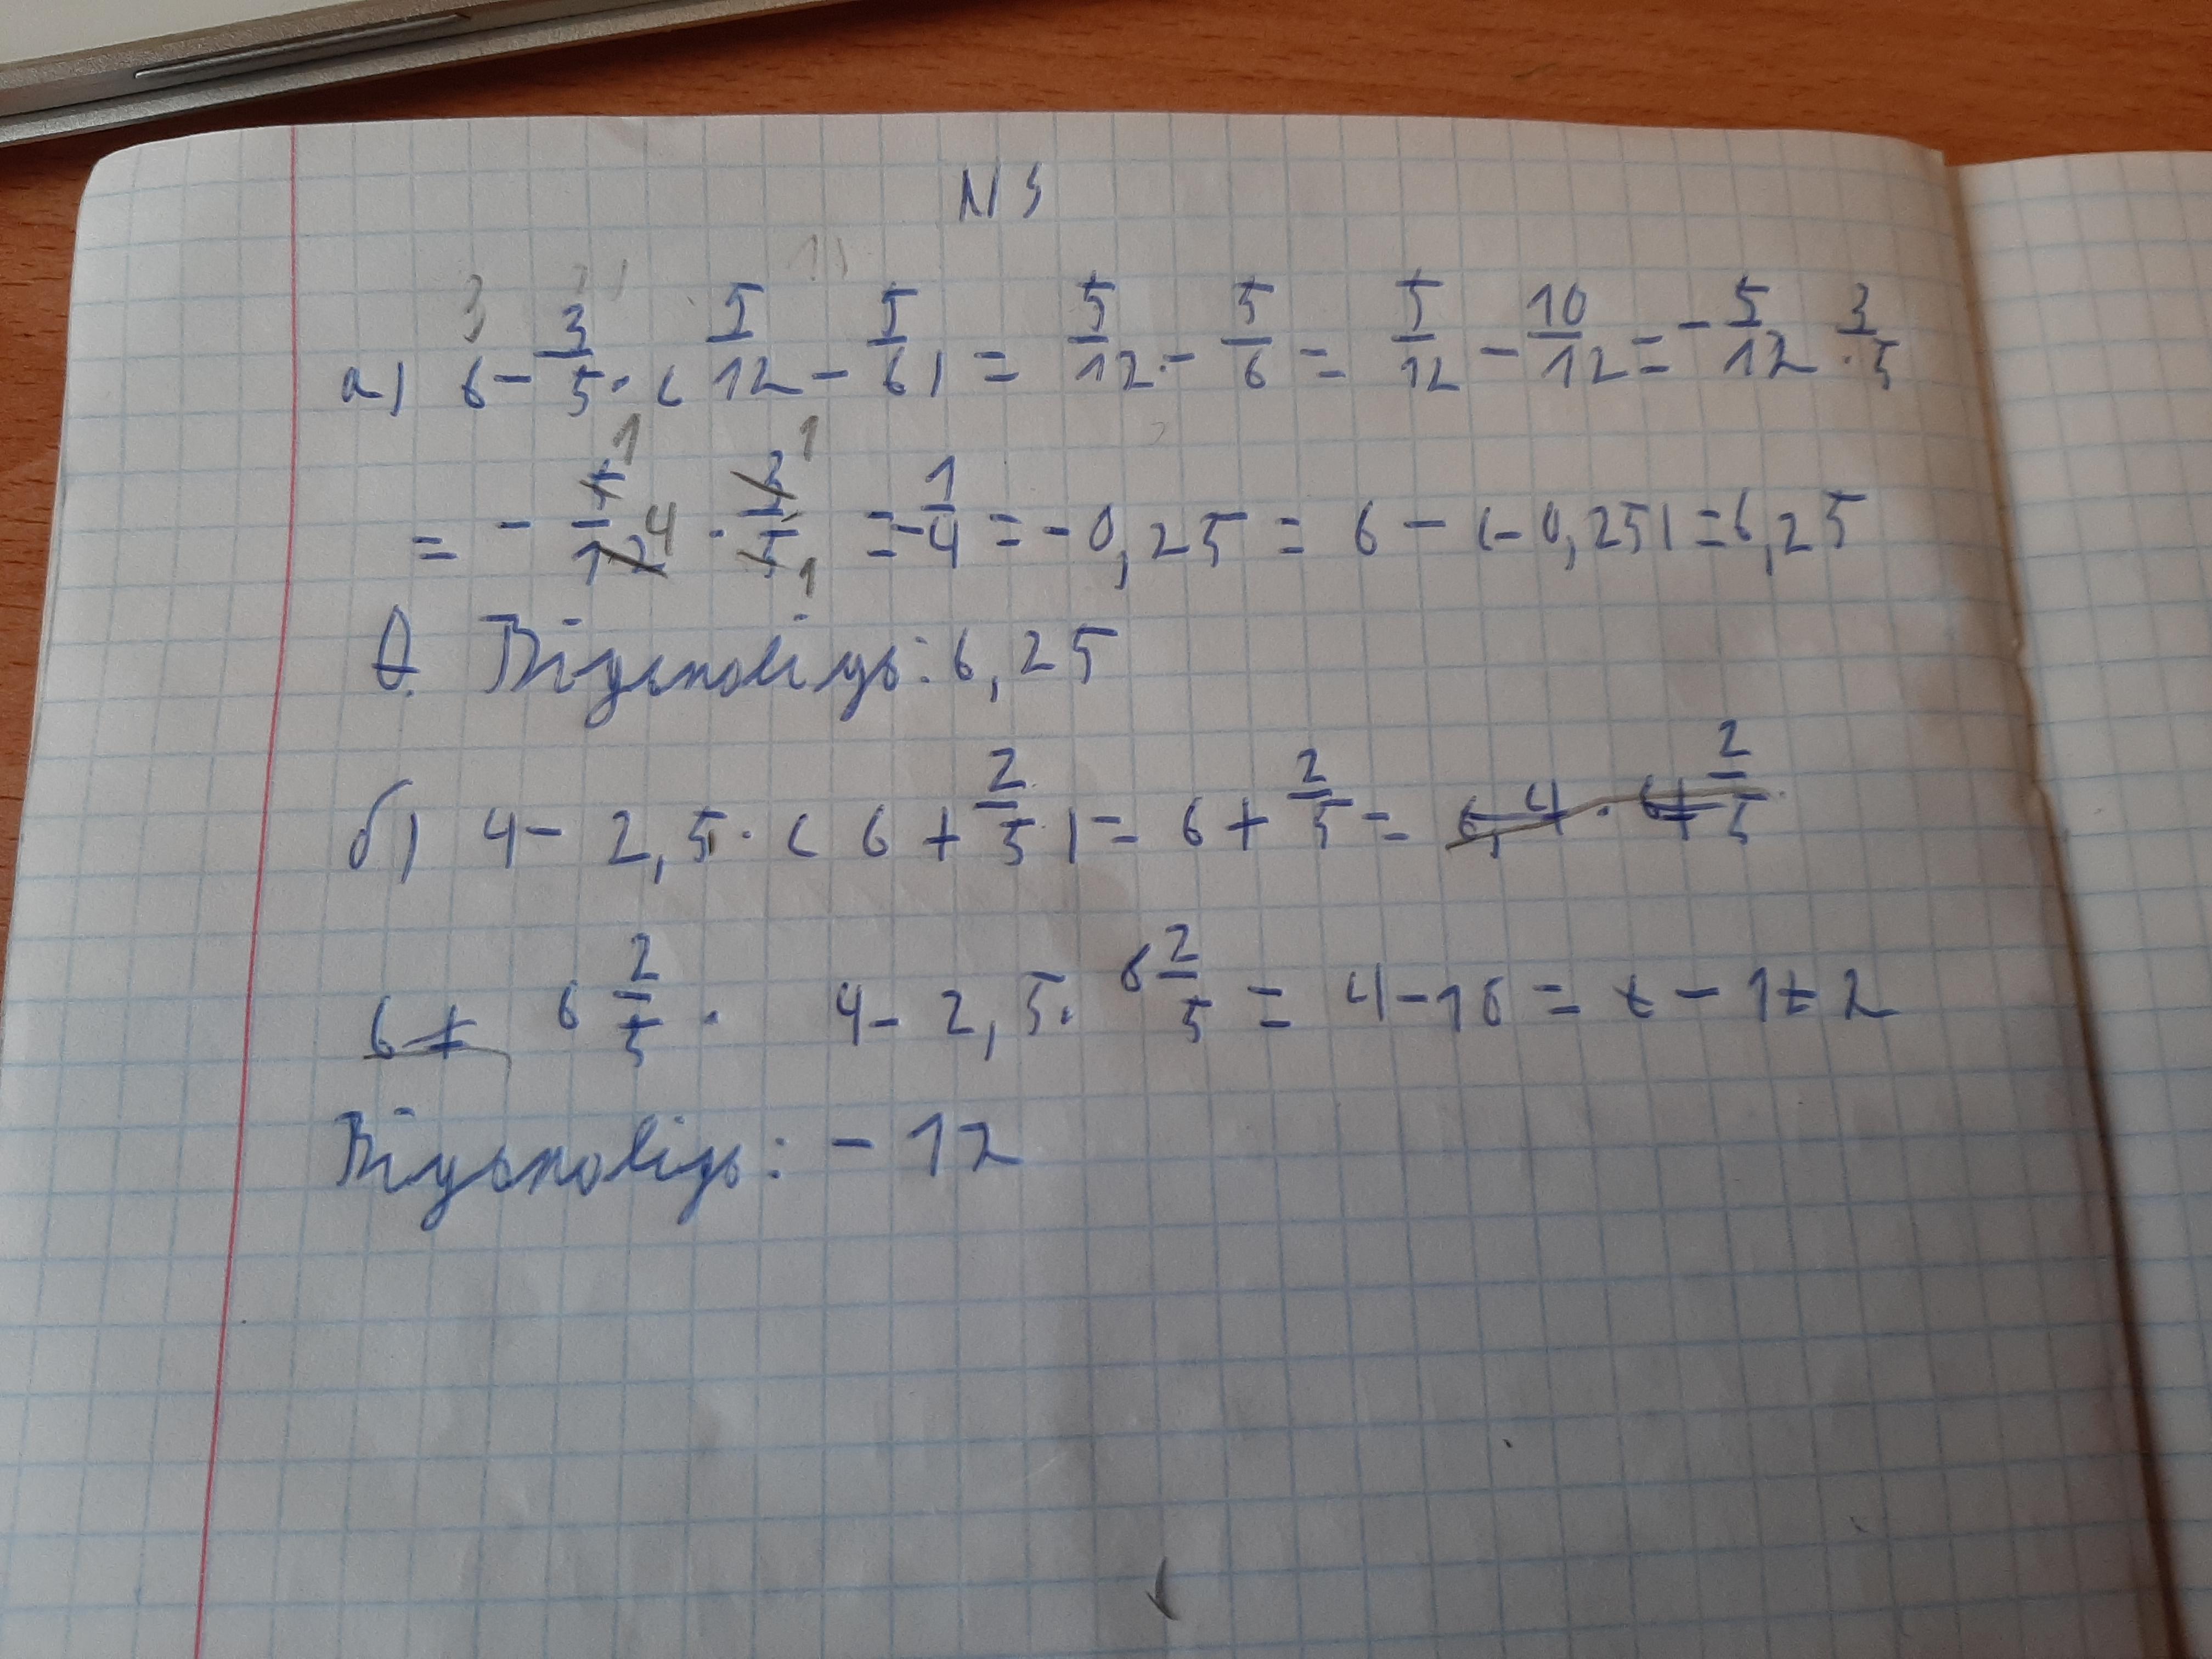 N 3
а) 6 - 3/5 · ( 5/12 - 5/6 ) = 5/12 - 5/6 = 5/12 - 10/12 = - 5/12 · 3/5
= - 5/12 · 3/5 = - 1/4 = - 0,25 = 6 - (- 0,25) = 6,25
Відповідь: 6,25
б) 4 - 2,5 · ( 6 + 2/5 ) = 6 + 2/5 =
6 2/5 · 4 - 2,5 · 6 2/5 = 4 - 16 = - 12
Відповідь: - 12